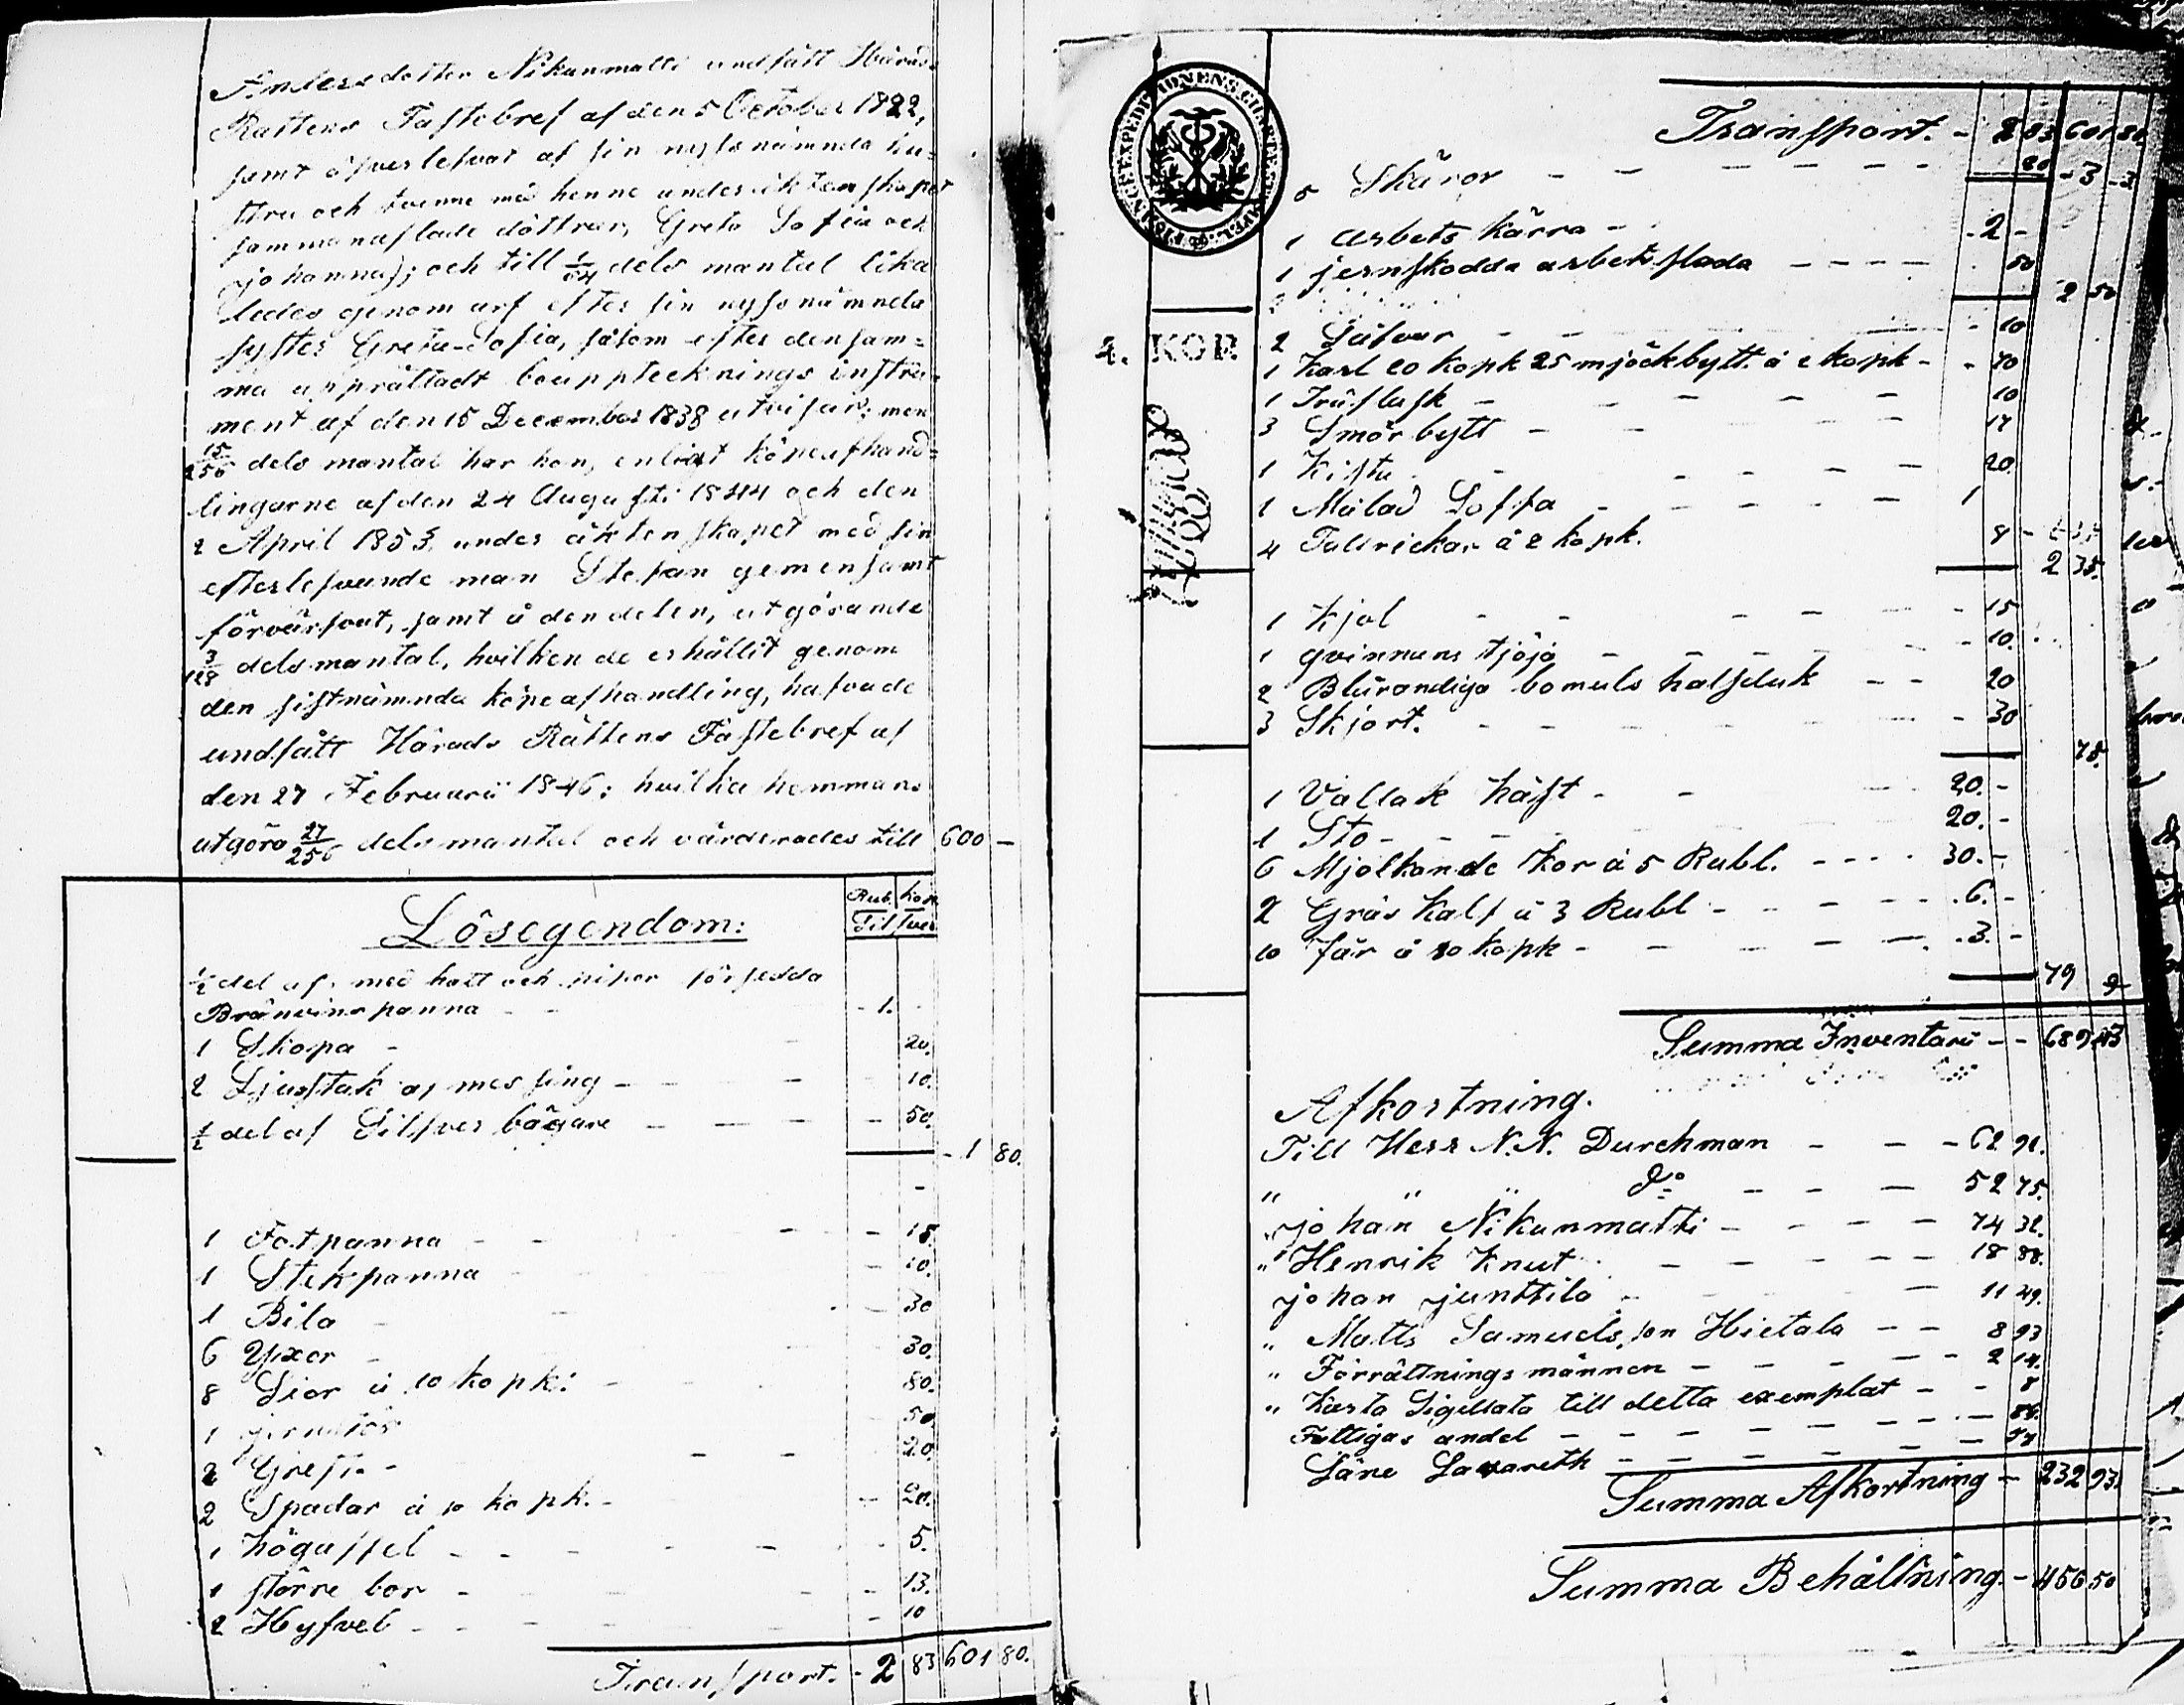 Andersdotter Nikunmatti undfått Härads
Rättens Fastebref af den 5 October 1822,
samt öfverlefvat af sin nyssnämnda hu-
stru och tvenne med henne under äktenskapet
sammanaflade döttrar, Greta Sofia och
Johanna); och till 1/64 dels mantal lika
ledes genom arf efter sin nyssnämnda
syster Greta-Sofia, såsom efter densam=
ma upprättadt bouppteckningsinstru-
ment af den 15 December 1838 utvisar; men
15/256 dels mantal har hon, enligt köpeafhand=
lingarne af den 24 Augusti 1844 och den
2 April 1853, under äktenskapet med sin
efterlefvande man Stefan gemensamt
förvärfvat, samt å den delen, utgörande
3/128 dels mantal, hvilken de erhållit genom
den sistnämnda köpeafhandling, hafvade
undfått Härads Rättens Fastebref af
den 27 Februarii 1846; hvilka hemmans
utgöra 27/256 dels mantal och värderades till 600 —
Lösegendom: Rub. Kop.
Silfver
1/2 del af med hatt och pipor försedda
Brännvins panna - 1. -
1 Skopa - 20.
2 Ljusstak af messing - 10.
1/2 del af Silfver bägare - 50.
- 1 80.
1 Fotpanna - 15.
1 Stekpanna - 10.
1 Bila - 30
6 Yxor - 30.
8 Lior à 10 kopk: - 80.
1 50.
2 Grefta - 20.
2 Spadar à 10 kopk. - 20.
1 högaffel - 5.
1 större bor - 13.
2 Hyfvel - 10
Transport. - 2 83 601 80.
CHARTÆ
Transport. - 2 83 601 80.
5 Skäror - 20 - 3 - 3
1 arbets kärra - 2 -
1 jernskodda arbetsslada - 50
2 50
4. KOP.
2 Såfvar - 10
1 Karl 20 kopk 25 mjöckbytt. à 2 kopk - 70
1 Träflask - 10
3 Smörbytt - 17
1 Kista - 20.
1 Målad Soffa - 1
4 Tallrickar à 2 kopk. 8
2 35.
1 Kjol - 15
1 qvinnans tjöjö - 10.
2 Blårandiga bomuls halsduk - 20
3 Skjort. - 30
75.
1 Vallak häst - 20. -
1 Sto - 20. -
6 Mjölkande Kor à 5 Rubl. - 30. -
2 Gräs Kalf à 3 Rubl - 6. -
10 Får à 30 kopk - 3. -
79 -
Summa Inventarii - 689 43
Afkortning.
Till Herr N.N. Durchman - 62 91.
" " " Do - 52 75.
" Johan Nikunmatti - 74 32.
" Henrik Knut - 18 88.
Johan Junttila - 11 29.
" Matts Samuelsson Hietala - 8 93
" Förrättningsmännen - 2 14.
" Karta Sigillata till detta exemplat - 8
Fattigas andel - 86.
Läne Lazareth - 57
Summa Afkortning - 232 93
Summa Behållning - 456 50